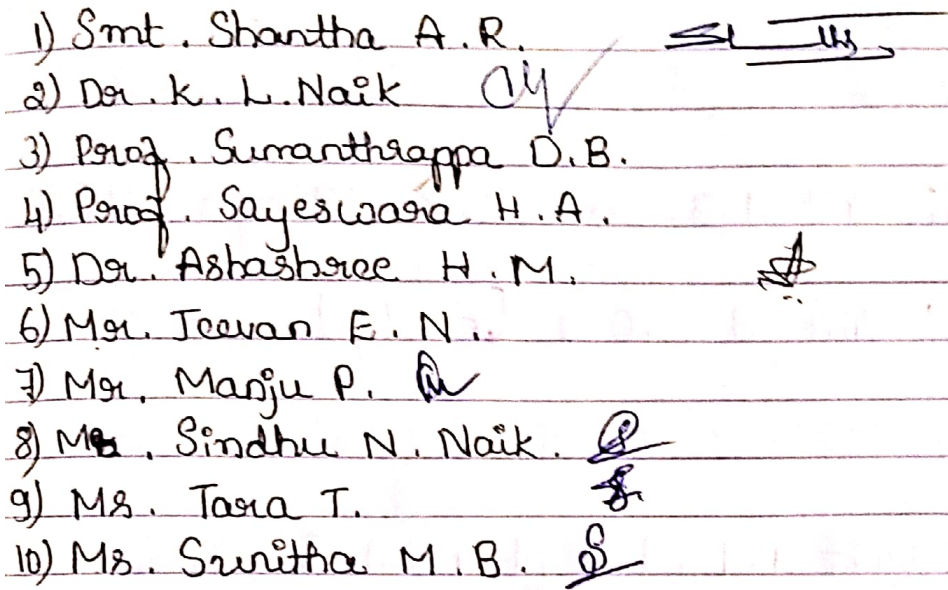 1) Smt. Shantha A.R.
2) Dr. K. L. Naik
3) Prof. Sumanthrappa D.B.
4) Prof. Sayeswara H.A.
5) Dr. Ashashree H.M.
6) Mr. Jeevan E.N.
7) Mr. Manju P.
8) Ms. Sindhu N. Naik.
9) Ms. Tara T.
10) Ms. Sunitha M.B.